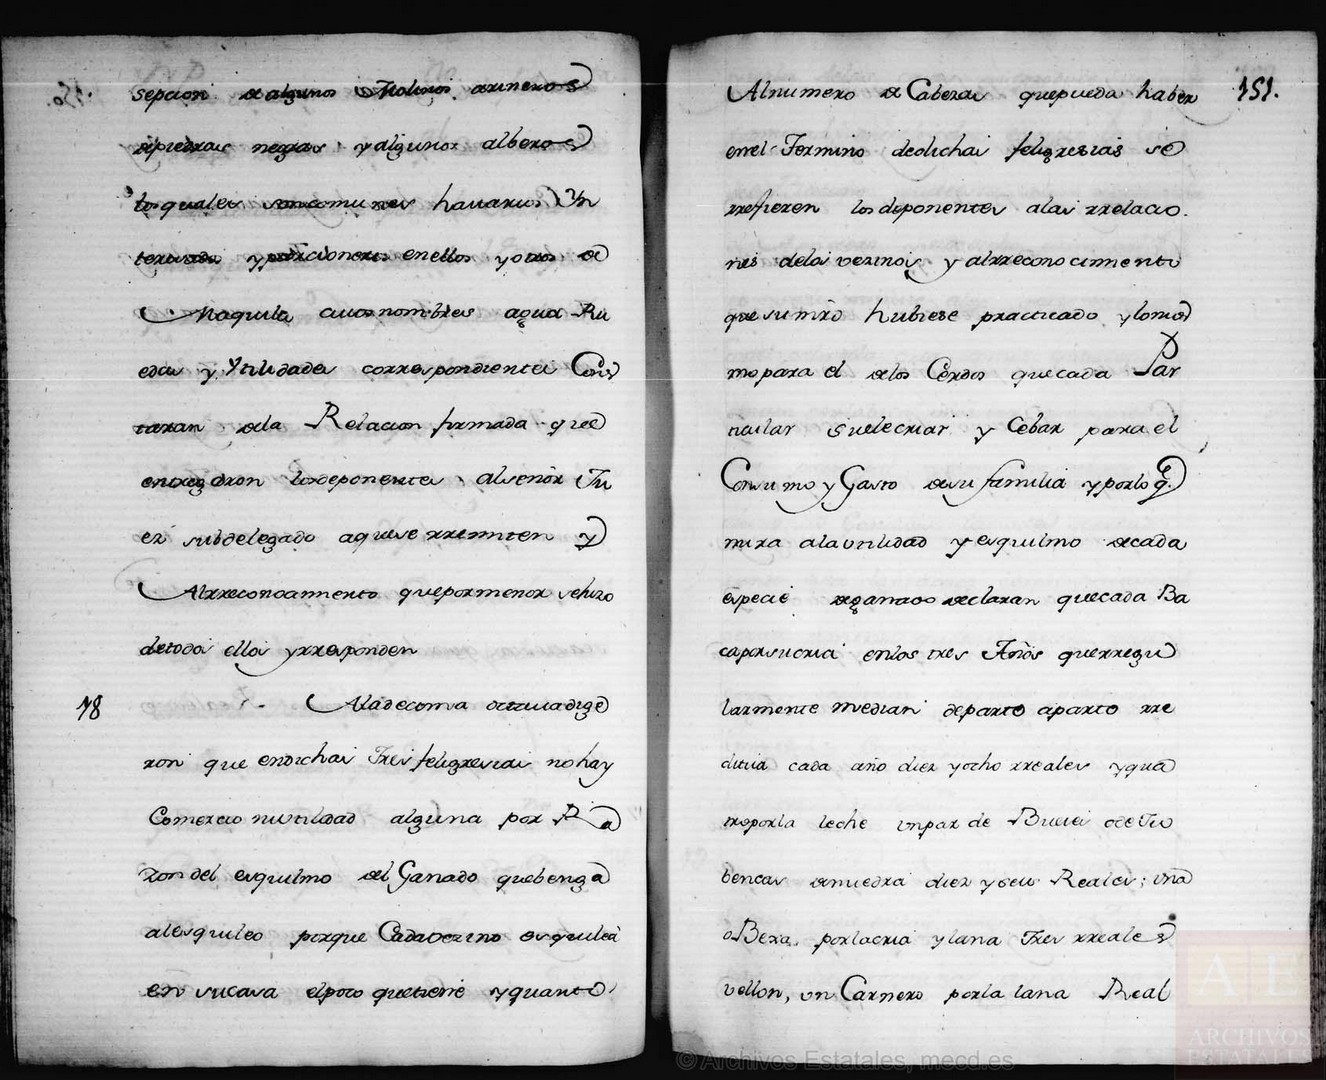 sepcion de algunos Molinos arineros
de piedras negras y algunos alberos
los quales son comunes havarios Yn
teresados y porcioneros en ellos y otros de
Maquila cuios nombres agua Ru
edas y Vtilidades correspondientes Cons
taran dela Relacion firmada que
entregaron los deponentes al señor Ju
ez subdelegado aquese rremiten y
Alrreconocimiento que pormenor sehizo
detodos ellos yrresponden
18 Aladecima octtava dige
ron que endichas Tres feligresias no hay
Comercio niutilidad alguna por Ra
zon del esquilmo del Ganado quebenga
alesquileo porque Cadavezino esquilea
en sucasa elpoco quetiene yquanto
151.
Alnumero de Cabezas quepueda haber
enel Termino dedichas feligresias se
rrefieren los deponentes alas rrelacio
nes delos vezinos y alrreconocimiento
que sumrd hubiese practicado ylomis
mopara el delos Cerdos que cada Par
ticular suelecriar y Cebar para el
Consumo y Gasto desu familia yporlo q.
mira ala utilidad y esquilmo decada
especie deganado declaran quecada Ba
caporsucria enlos tres Años querregu
larmente median departo aparto rre
ditua cada año diez yocho rreales yqua
troporla leche unpar de Bueies odeJu
bencas demedra diez yseis Reales; una
oBexa porlacria ylana Tres rreales
vellon, un Carnero porla lana Real
© Archivos Estatales, mecd.es
AE
ARCHIVOS
ESTATALES